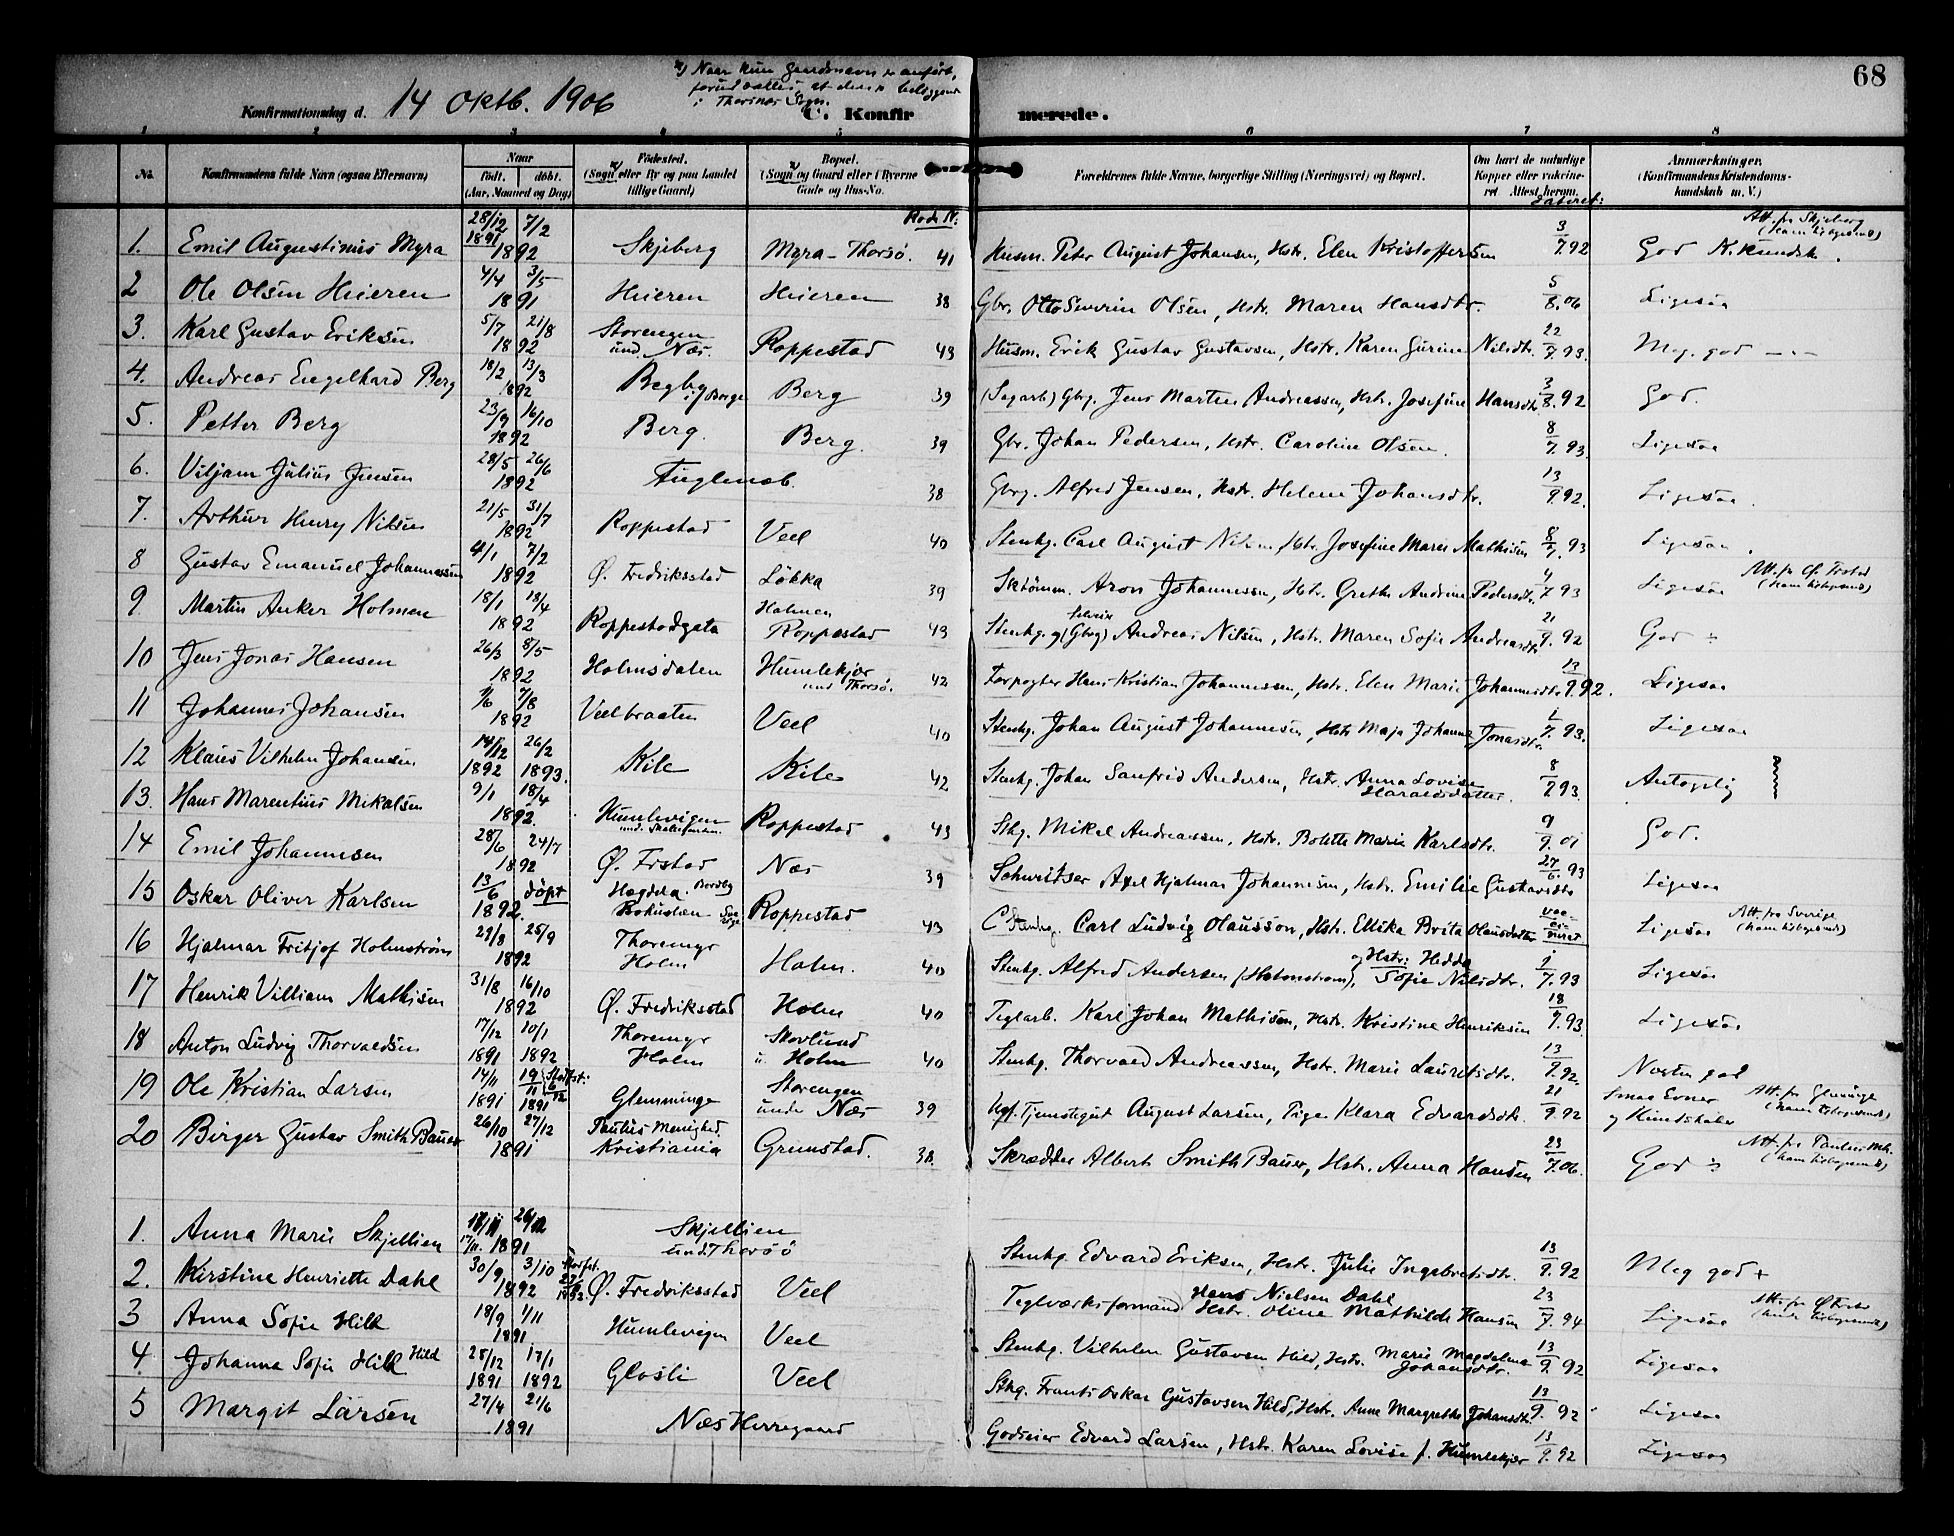 68
Konfirmationsdag d. 14 Oktb. 1906
*) Naar kun Gaardsnavn er anført,
forudsættes, at den er beliggende
i Thorsnes Sogn.
C. Konfirmerede.
1 2 3 4 5 6 7 8
No. Konfirmandens fulde Navn (ogsaa Efternavn) Naar født. døbt. (Aar, Maaned og Dag) Fødested. (Sogn eller By og paa Landet tillige Gaard) Bopæl. (Sogn og Gaard eller i Byerne Gade og Hus-No. Forældrenes fulde Navne, borgerlige Stilling (Næringsvei) og Bopæl. Om havt de naturlige Kopper eller vakcineret. Attest herom. Anmærkninger. (Konfirmandens Kristendomskundskab m. V.)
Rode N: Dateret:
1. Emil Augustinus Myra 28/12 1891 7/2 1892 Skjeberg Myra - Thorsø. 41 Husm. Peter August Johansen, Hstr. Elen Kristoffersen 3/7 92 God N. Kundsk. Att. fra Skjeberg
2 Ole Olsen Heieren 4/4 3/5 1891 Heieren Heieren 38 Gbr. Otto Severin Olsen, Hstr. Maren Hansdtr. 5/8.06 Ligesaa
3. Karl Gustav Eriksen 5/7 21/8 1892 Storengen und. Næs. Roppestad 43 Husm. Erik Gustav Gustavsen, Hstr. Karen Gurine Nilsdtr. 22/7.93. Meg. god
4. Andreas Engelhard Berg 18/2 13/3 1892 Begby i Borge Berg 39 (Sagarb) Gbg. Jens Martin Andreassen, Hstr. Josefine Hansdtr 3/8.92 God.
5. Petter Berg 23/9 16/10 1892 Berg. Berg. 39 Gbr. Johan Pedersen, Hstr. Caroline Olsen. 8/7.93. Ligesaa
6. Viljam Julius Jensen 28/5 26/6 1892 Fuglenæb. 38 Gbrg. Alfred Jensen, Hstr. Helene Johansdtr. 13/9 92. Ligesaa
7. Arthur Henry Nilsen 21/5 31/7 1892 Roppestad Veel 40 Stenhg. Carl August Nilsen, Hstr. Josefine Marie Mathisen 8/7. 93 Ligesaa
8 Gustav Emanuel Johannessen 4/1 7/2 1892 Ø. Fredriksstad Løkka 39 Aron Johannessen, Hstr. Grethe Andrine Pedersdtr. 4/7 93 Ligesaa
9 Martin Anker Holmen 18/1 18/4 1892 Roppestadgata Holmen Roppestad 43 Stenhg. og (Gbrg) Selveier Andreas Nilsen, Hstr. Maren Sofie Andreasdtr 21/9. 92 God
10 Jens Jonas Hansen 26/3 8/5 1892 Holmsdalen Humlekjær und Thorsø. 42 Forpagter Hans Kristian Johannessen, Hstr. Elen Marie Johannesdtr 13/9.92. Ligesaa
11 Johannes Johansen 7/8 1892 Veelbraaten Veel 40 Stenhg. Johan August Johannesen, Hstr. Maja Johanne Jonasdtr. 1/7. 93. Ligesaa
12 Klaus Vilhelm Johansen 14/12 1892 26/2 1893. Kile Kile 42 Stenhg. Johan Sanfrid Andersen, Hstr. Anna Lovise Haraldsdatter. 8/7 93. Antagelig
13. Hans Marentius Mikalsen 9/1 18/4 1892. Humlevigen Roppestad 43 Sthg. Mikal Andreassen, Hstr. Bolette Marie Karlsdtr. 9/9. 01 God.
14 Emil Johannesen 28/6 24/7 1892 Ø. Frstad Næs 39 Schweitser Axel Hjalmar Johannesen, Hstr. Emilie Gustavsdtr 27/6. 93 Ligesaa
15 Oskar Oliver Karlsen 13/6 døpt 1892. Roppestad 43 Stenhg. Carl Ludvig Olausson, Hstr. Ellika Brita Olausdatter Ligesaa Att. fra Sverige
16 Hjalmar Fritjof Holmstrøm 29/8 25/9 1892 Thoremyr Holm Holm. 40 Stenhg. Alfred Andersen (Holmstrøm), og Hstr: Hedda Sofie Nilsdtr. 1/7.93 Ligesaa
17 Henrik Villiam Mathisen 31/8 16/10 1892 Ø. Fredriksstad Holm 40 Teglarb. Karl Johan Mathisen, Hstr. Kristine Henriksen 18/7.93. Ligesaa
18 Anton Ludvig Thorvaldsen 17/12 1891 10/1 1892 Thoremyr Holm Skovlund u. Holm 40 Stenhg. Thorvald Andreassen, Hstr. Marie Lauritsdtr. 13/9.92. Næsten god
19 Ole Kristian Larsen 14/11 1891 19/11 1891 Glemminge Storengen under Næs 39 Ugf. Tjenstegut August Larsen, Pige Klara Edvardsdtr. 21/9.92 Smaa Evner og Kundskaber Att. fra Glemminge
20 Birger Gustav Smith Bauer 26/10 27/12 1891 Paulus Menighed. Kristiania Grimstad. 38. Skrædder Albert Smith Bauer, Hstr. Anna Hansen 23/7.06. God Att. fra Paulus Mh.
1. Anna Marie Skjellien 17/11. 26/12 1891 Skjellien und. Thorsø Stenhg. Edvard Eriksen, Hstr. Julie Ingebretsdtr. 13/9.92 Meg god +
2. Kirstine Henriette Dahl 30/9 3/10 1892 Ø. Fredriksstad Veel Teglværksformand Hans Nielsen Dahl Hstr. Oline Mathilde Hansen 23/7.94 Ligesaa
3 Anna Sofie Hild 18/9 1/11 1891 Humlevigen Veel Stenhg. Vilhelm Gustavsen Hild, Hstr. Marie Magdalena Johansdtr. 13/9. 92 Ligesaa
4. Johanna Sofie Hild 28/12 1891 17/1 1892 Glosli Veel Sthg. Frants Oskar Gustavsen Hild, Hstr. Anne Margrethe Johansdtr. 13/9. 92 Ligesaa
5 Margit Larsen 27/4 21/6 1891 Næs Herregaard Godseier Edvard Larsen, Hstr. Karen Lovise f. Humlekjær 13/9.92 Ligesaa